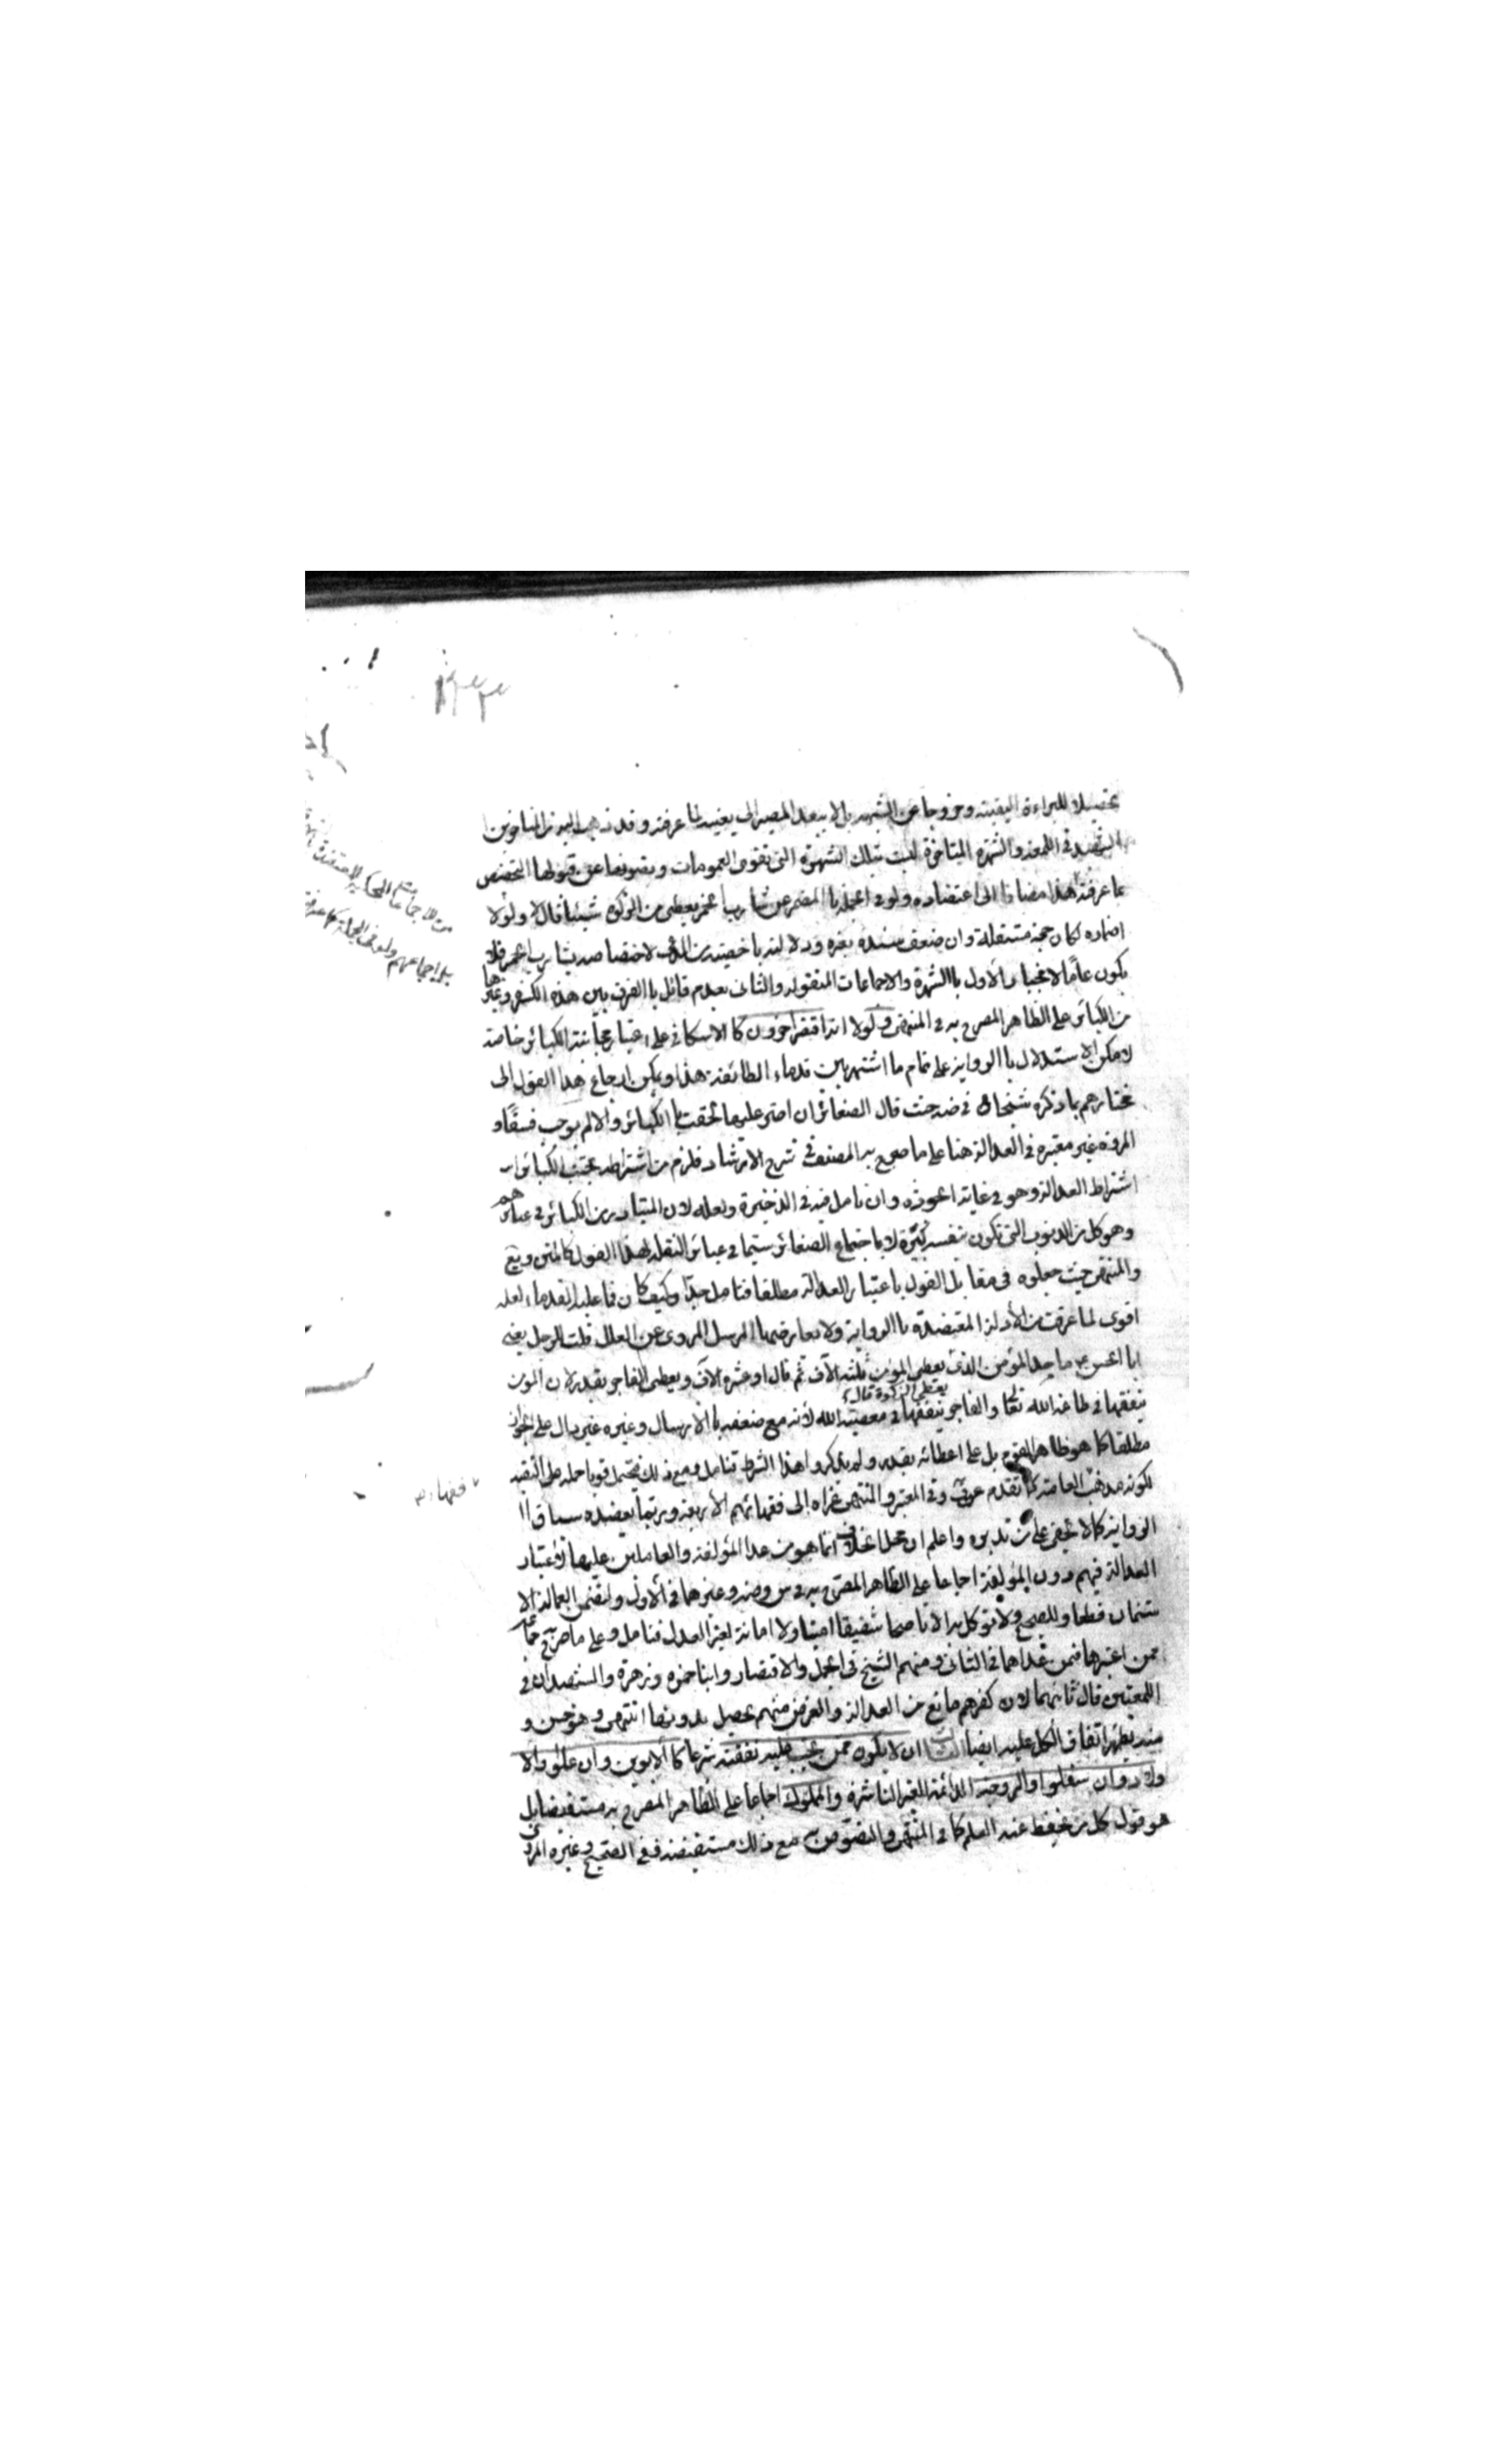 تحصيلا للبراءة اليقينية وخروجا عن الشبهة بل لا يبعد المصير اليه بعينه لما عرفته وقد ذهب اليه من المتاخرين
الشهيد في اللمعة والشهرة المتاخرة ليست بتلك الشهرة التى تقوى العمومات ويصونها عن قبولها التخصيص
بما عرفته هذا مضافا الى اعتضاده ولو في الجملة بالمضمر عن شارب الخمر يعطى من الزكوة شيئا قال لا ولولا
اضماره لكان حجة مستقلة وان ضعف سنده بغيره ودلالته باخصيته من المدعى لاختصاصه بشارب الخمر فلا
يكون عاما لانجبار الأول بالشهرة والاجماعات المنقولة والثانى بعدم قائل بالفرق بين هذه الكبيرة وغيرها
من الكبائر على الظاهر المصرح به في المنتهى ولولا انه اقتصر اخرون كالاسكافي على اعتبار مجانبة الكبائر خاصة
لامكن الاستدلال بالرواية على تمام ما اشتهر بين قدماء الطائفة هذا ويمكن ارجاع هذا القول الى
مختارهم بما ذكره شيخنا في ضه حيث قال الصغائر ان اصر عليها لحقت بالكبائر والا لم يوجب فسقا و
المروة غير معتبرة في العدالة هنا على ما صرح به المصنف في شرح الارشاد فلزم من اشتراط تجنب الكبائر
اشتراط العدالة وهو في غاية الجودة وان تامل فيه في الذخيرة ولعله لان المتبادر من الكبائر في عبائرهم
وهو كل من الذنوب التى تكون بنفسه كبيرة لا باجتماع الصغائر سيما في عبائر النقلة لهذا القول كالمتن ويع
والمنتهى حيث جعلوه في مقابل القول باعتبار العدالة مطلقا فتامل جدا وكيف كان فما عليه القدماء لعله
اقوى لما عرفت من الأدلة المعتضدة بالرواية ولا يعارضها المرسل المروى عن العلل قلت للرجل يعنى
ابا الحسن ع ما حد المؤمن الذى يعطى الزكوة قال ع يعطى المؤمن ثلثة الآف ثم قال او عشرة الآف ويعطى الفاجر بقدر لان المؤمن
ينفقها في طاعة الله تعا والفاجر ينفقها في معصية الله لأنه مع ضعفه بالارسال وغيره غير دال على الجواز
مطلقا كما هو ظاهر القوم بل على اعطائه بقدر ولم يذكروا هذا الشرط تنامل ومع ذلك يحتمل قويا حمله على التقية
لكونه مذهب العامة كما تقدم وفي المعتبر والمنتهى عزاه الى فقهائهم الأربعة وربما يعضده سياق
الرواية كما لا يخفى على من تدبره واعلم ان محل الخلاف انما هو من عدا المؤلفة والعاملين عليها لاعتبار
العدالة فيهم دون المؤلفة اجماعا على الظاهر المصرح به في وضه وغيرهما في الأول ولتضمن العمالة الا
ستئمان قطعا وللصحيح ولا توكل به الا ناصحا شفيقا امينا ولا امانة لغير العدل فتامل وعلى ما صرح به جماعة
ممن اعتبرها فيمن عداهما في الثانى ومنهم الشيخ في الجمل والاقتصاد وابنا حمزة وزهرة والسيدان في
قال ثانيهما لان كفرهم مانع من العدالة والغرض منهم يحصل بدونها انتهى وهو حسن و
منه يظهر اتفاق الكل عليه ايضا الثالث ان لا يكون ممن يجب عليه نفقته شرعا كالابوين وان علوا والا
ولاد وان سفلوا والزوجة الدائمة الغير الناشزة والمملوك اجماعا على الظاهر المصرح به مستفيضا بل
هو قول كل من يحفظ عنه العلم كما في المنتهى والنصوص به مع ذلك مستفيضة ففي الصحيح وغيره المروى
من الاجماعات المحكية المعتضدة
بل اجماعهم ولو في الجملة كما عرفته
فقهاء